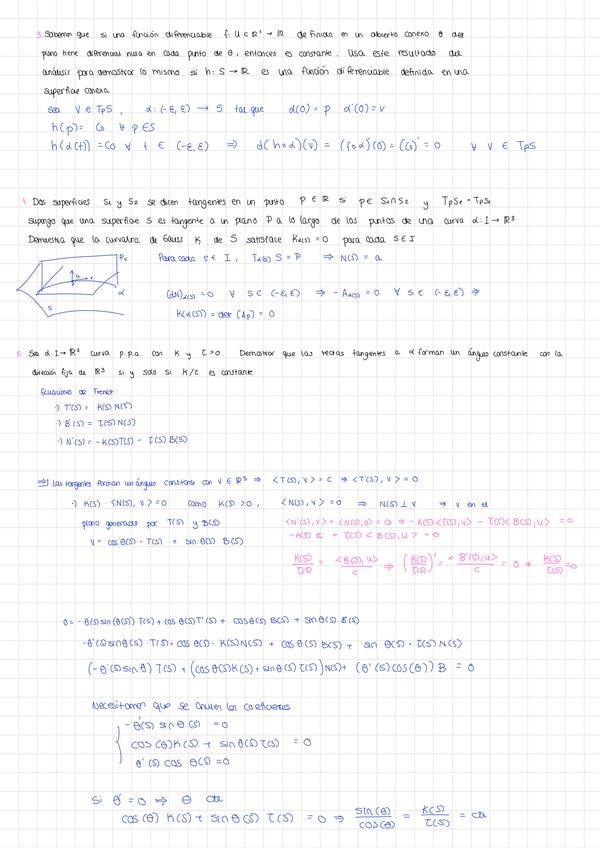 3. Sabemos que si una función diferenciable f: U ⊂ R² → R definida en un abierto conexo θ del
plano tiene diferencial nula en cada punto de θ, entonces es constante. Usa este resultado del
análisis para demostrar lo mismo si h: S → R es una función diferenciable definida en una
superficie conexa.
Sea V ∈ TpS, α: (-ε, ε) → S tal que α(0) = p α'(0) = v
h(p) = C0 ∀ p ∈ S
h(α(t)) = C0 ∀ t ∈ (-ε, ε) ⇒ d(h∘α)(v) = (f∘α)'(0) = (C0)' = 0 ∀ v ∈ TpS
4. Dos superficies S1 y S2 se dicen tangentes en un punto P ∈ R si p ∈ S1∩S2 y TpS1 = TpS2
supongo que una superficie S es tangente a un plano P a lo largo de los puntos de una curva α: I → R³
Demuestra que la curvatura de Gauss K de S satisface Kα(s) = 0 para cada S ∈ I
Para cada s ∈ I, Tα(s) S = P ⇒ N(s) = a
α
S
(dN)α(s) = 0 ∀ s ⊂ (-ε, ε) ⇒ -Aα(s) = 0 ∀ s ∈ (-ε, ε) ⇒
K(α(s)) = det (Ap) = 0
5. Sea α: I → R³ curva p.p.a. con K y τ > 0. Demostrar que las rectas tangentes a α forman un ángulo constante con la
dirección fija de R³ si y solo si K/τ es constante
Ecuaciones de Frenet:
·) T'(s) = K(s) N(s)
·) B'(s) = τ(s) N(s)
·) N'(s) = -K(s)T(s) - τ(s) B(s)
⇒) Las tangentes forman un ángulo constante con v ∈ R³ ⇒ <T(s), v> = c ⇒ <T'(s), v> = 0
·) K(s) · <N(s), v> = 0 como K(s) > 0, <N(s), v> = 0 ⇒ N(s) ⊥ v ⇒ v en el
plano generado por T(s) y B(s)
v = cos θ(s) · T(s) + sin θ(s) B(s)
<N'(s), v> + <N(s), 0> = 0 ⇒ -K(s)<T(s), v> - τ(s)<B(s), u> = 0
-K(s) c - τ(s) <B(s), u> = 0
K(s)/τ(s) = <B(s), u>/c ⇒ (K(s)/τ(s))' = <B'(s), u>/c = 0 ⇒ K(s)/τ(s) = 0
0 = -θ(s) sin (θ(s)) T(s) + cos θ(s) T'(s) + cos θ(s) B(s) + sin θ(s) B'(s)
-θ'(s) sin θ(s) · T(s) + cos θ(s) · K(s) N(s) + cos θ(s) B(s) + sin θ(s) · τ(s) N(s)
(-θ'(s) sin θ) T(s) + (cos θ(s) K(s) + sin θ(s) τ(s)) N(s) + (θ'(s) cos(θ)) B = 0
Necesitamos que se anulen los coeficientes
-θ'(s) sin θ(s) = 0
cos (θ) K(s) + sin θ(s) τ(s) = 0
θ'(s) cos θ(s) = 0
Si θ' = 0 ⇒ θ cte
cos (θ) K(s) + sin θ(s) τ(s) = 0 ⇒ sin(θ)/cos(θ) = K(s)/τ(s) = cte